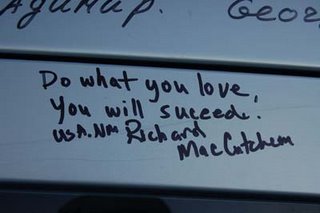 Geor
Do what you love,
You will succede.
USA. NM Richard
MacCutchem